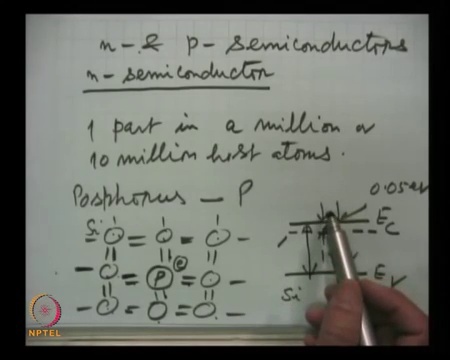 n- & p- semiconductors
n- semiconductor
1 part in a million or
10 million host atoms.
Posphorus — P
0.05 eV
Si
Ec
e
P
Si
Ev
NPTEL